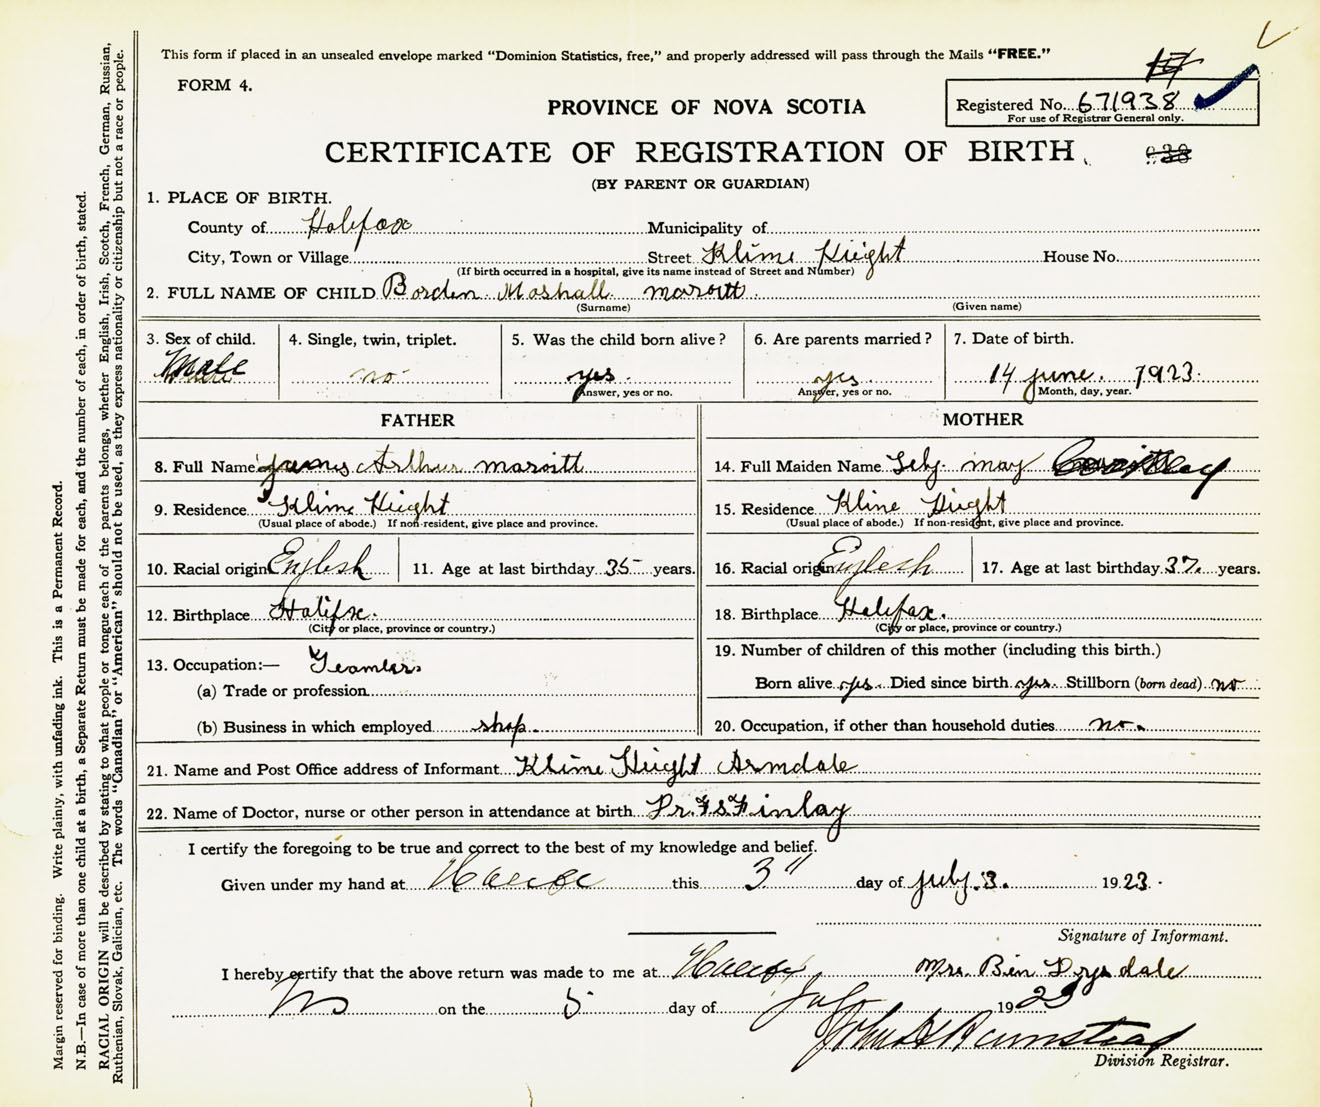 This form if placed in an unsealed envelope marked “Dominion Statistics, free,” and properly addressed will pass through the Mails “FREE.”
FORM 4.
PROVINCE OF NOVA SCOTIA
Registered No. 671938
For use of Registrar General only.
CERTIFICATE OF REGISTRATION OF BIRTH
(BY PARENT OR GUARDIAN)
1. PLACE OF BIRTH.
County of Halifax Municipality of
City, Town or Village Street Kline Height House No.
(If birth occurred in a hospital, give its name instead of Street and Number)
2. FULL NAME OF CHILD Borden Moshall
(Surname) (Given name)
3. Sex of child. 4. Single, twin, triplet. 5. Was the child born alive? 6. Are parents married? 7. Date of birth.
Male no yes yes 14 june. 1923.
Answer, yes or no. Answer, yes or no. Month, day, year.
FATHER MOTHER
8. Full Name James Arthur 14. Full Maiden Name may
9. Residence Kline Height 15. Residence Kline Hieght
(Usual place of abode.) If non-resident, give place and province. (Usual place of abode.) If non-resident, give place and province.
10. Racial origin English 11. Age at last birthday 35 years. 16. Racial origin English 17. Age at last birthday 37 years.
12. Birthplace Halifx. 18. Birthplace Halifax.
(City or place, province or country.) (City or place, province or country.)
13. Occupation:— 19. Number of children of this mother (including this birth.)
(a) Trade or profession Born alive yes. Died since birth yes. Stillborn (born dead) no
(b) Business in which employed shop. 20. Occupation, if other than household duties no.
21. Name and Post Office address of Informant Kline Height Armdale
22. Name of Doctor, nurse or other person in attendance at birth Dr. F S Finlay
I certify the foregoing to be true and correct to the best of my knowledge and belief.
Given under my hand at this 3" day of july. 3. 1923.
Signature of Informant.
I hereby certify that the above return was made to me at Mrs. Ben Drysdale
NS on the 5 day of July 1923
Division Registrar.
Margin reserved for binding. Write plainly, with unfading ink. This is a Permanent Record.
N.B.—In case of more than one child at a birth, a Separate Return must be made for each, and the number of each, in order of birth, stated.
RACIAL ORIGIN will be described by stating to what people or tongue each of the parents belongs, whether English, Irish, Scotch, French, German, Russian,
Ruthenian, Slovak, Galician, etc. The words “Canadian” or “American” should not be used, as they express nationality or citizenship but not a race or people.